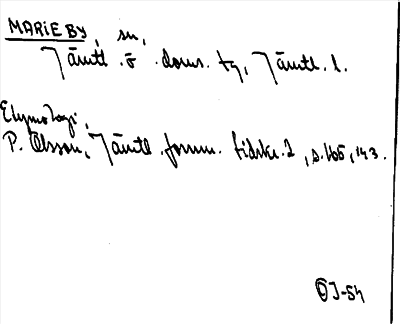 MARIEBY, sn,
Jämtl. ö doms. tg, Jämtl. l.
Etymologi,
P. Olsson, Jämtl. fornm. tidskr. 2, s. 165, '43.
OJ-54